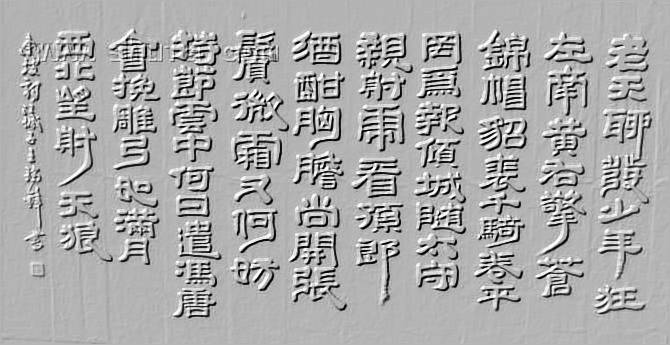 老夫聊發少年狂
左牽黄右擎蒼
錦帽貂裘千騎卷平
岡爲報傾城隨太守
親射虎看孫郎
酒酣胸膽尚開張
鬢微霜又何妨
持節雲中何日遣馮唐
會挽雕弓如滿月
西北望射天狼
東坡詞江城子 書